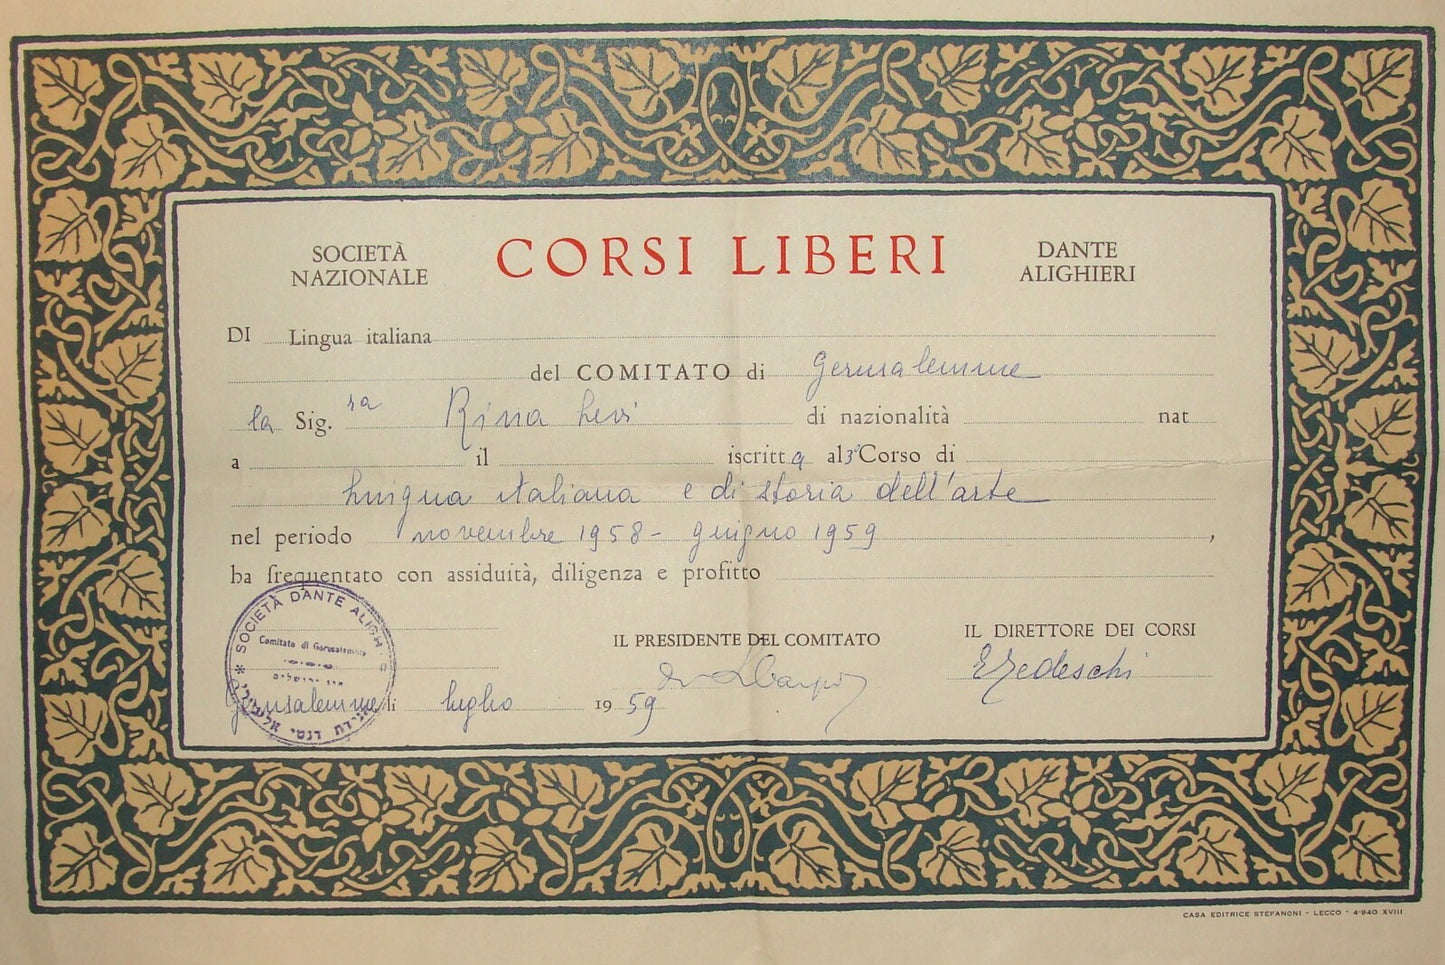 SOCIETÀ NAZIONALE CORSI LIBERI DANTE ALIGHIERI
DI Lingua italiana
del COMITATO di Gerusalemme
la Sig.ra Rina Levi di nazionalità nat
a il iscritta al 3° Corso di
Lingua italiana e di storia dell'arte
nel periodo novembre 1958 - giugno 1959,
ha frequentato con assiduità, diligenza e profitto
IL PRESIDENTE DEL COMITATO IL DIRETTORE DEI CORSI
Tedeschi
Gerusalemme li luglio 1959
SOCIETÀ DANTE ALIGH
Comitato di Gerusalemme
סניף ירושלים
דנטי אליגיירי
CASA EDITRICE STEFANONI - LECCO - 4-940 XVIII